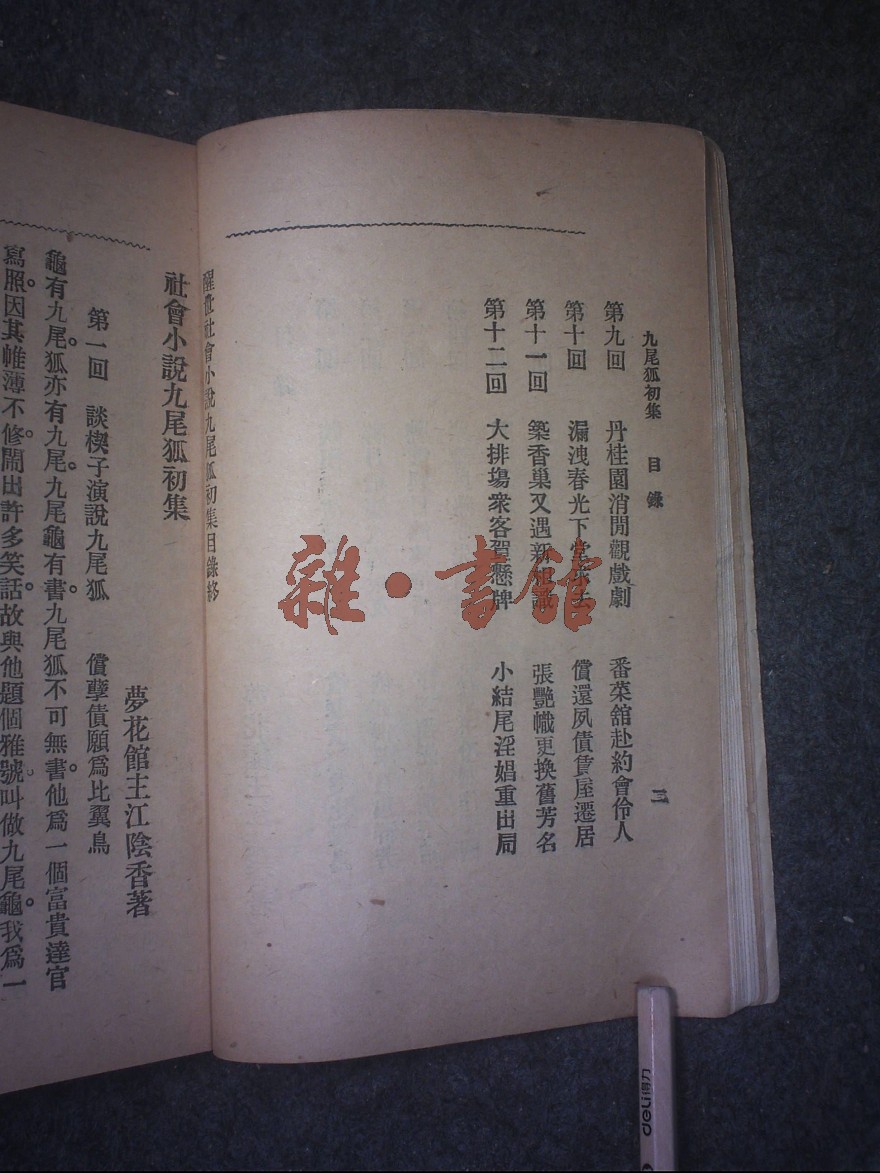 九尾狐初集　目錄　三
第九回　丹桂園消閒觀戲劇　番菜舘赴約會伶人
第十回　漏洩春光下堂求去　償還夙債賃屋遷居
第十一回　築香巢又遇新相識　張艷幟更換舊芳名
第十二回　大排塲衆客賀懸牌　小結尾淫娼重出局
醒世社會小說九尾狐初集目錄終
社會小說九尾狐初集
夢花館主江陰香著
第一回　談楔子演說九尾狐　償孽債願爲比翼鳥
龜有九尾狐亦有九尾。九尾龜有書。九尾狐不可無書。他爲一個富貴達官
寫照。因其帷薄不修。閙出許多笑話。故與他題個雅號。叫做九尾龜。我爲一
雜·書舘
deli得力